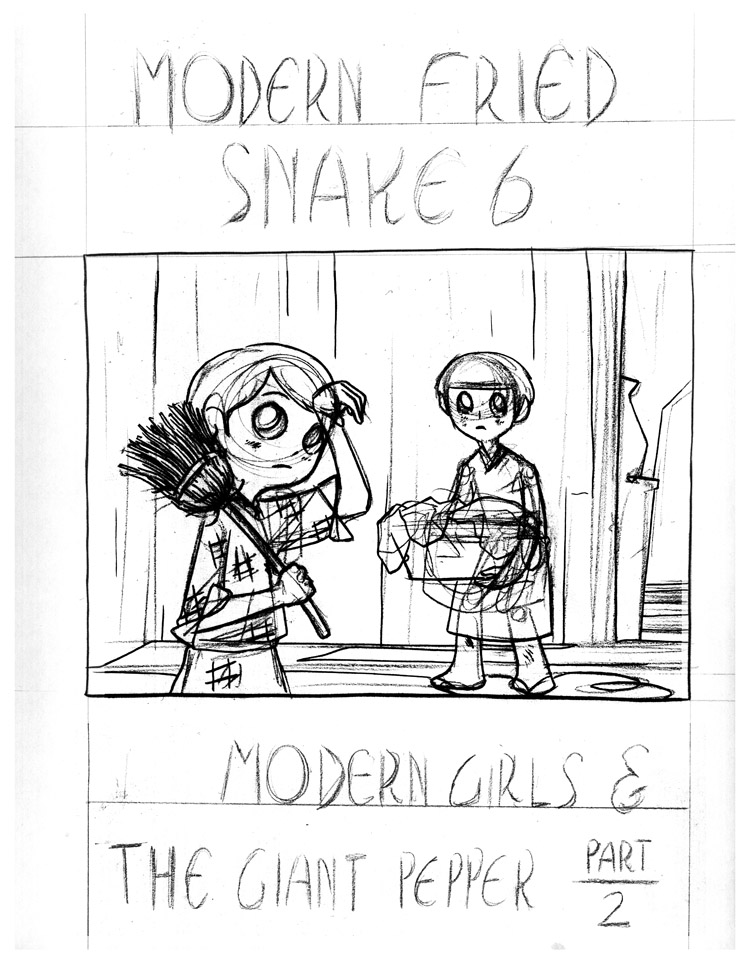 MODERN FRIED
SNAKE 6
MODERN GIRLS &
THE GIANT PEPPER PART 2